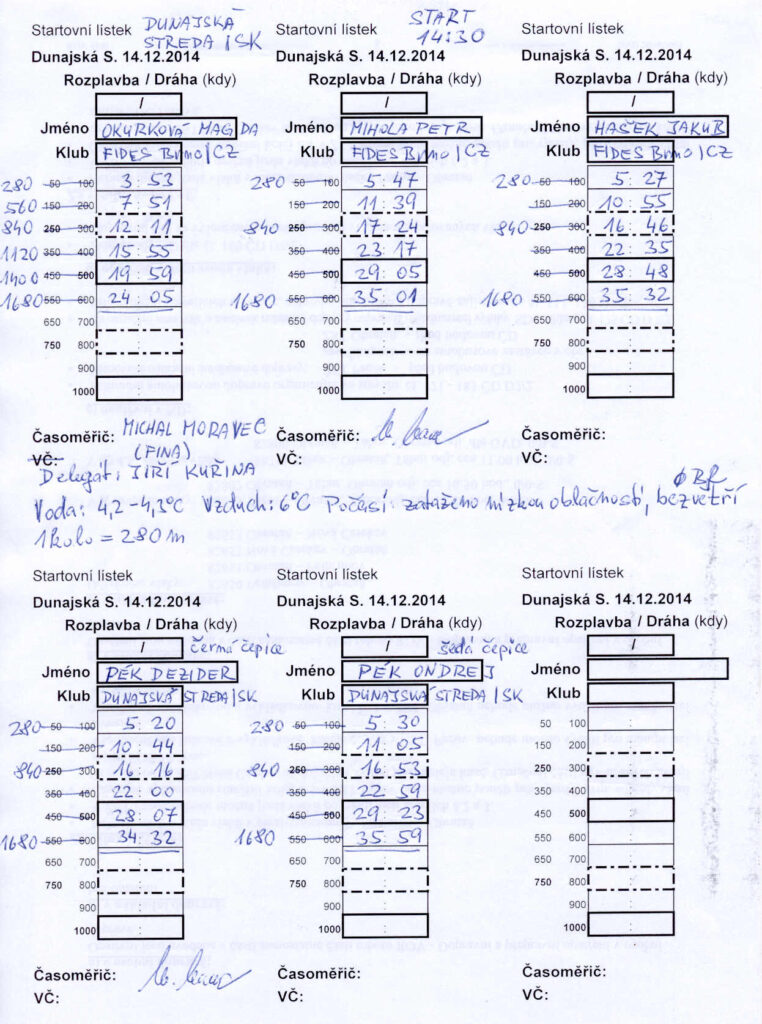 Startovní lístek DUNAJSKÁ STREDA / SK
Dunajská S. 14.12.2014
Rozplavba / Dráha (kdy)
/
Jméno OKURKOVÁ MAGDA
Klub FIDES Brno / CZ
280 50 100 3 : 53
560 150 200 7 : 51
840 250 300 12 : 11
1120 350 400 15 : 55
1400 450 500 19 : 59
1680 550 600 24 : 05
650 700 :
750 800 :
900 :
1000 :
Časoměřič: MICHAL MORAVEC
VČ: (FINA)
Startovní lístek START 14:30
Dunajská S. 14.12.2014
Rozplavba / Dráha (kdy)
/
Jméno MIHOLA PETR
Klub FIDES Brno / CZ
280 50 100 5 : 47
150 200 11 : 39
840 250 300 17 : 24
350 400 23 : 17
450 500 29 : 05
1680 550 600 35 : 01
650 700 :
750 800 :
900 :
1000 :
Časoměřič:
VČ:
Startovní lístek
Dunajská S. 14.12.2014
Rozplavba / Dráha (kdy)
/
Jméno HAŠEK JAKUB
Klub FIDES Brno / CZ
280 50 100 5 : 27
150 200 10 : 55
840 250 300 16 : 46
350 400 22 : 35
450 500 28 : 48
1680 550 600 35 : 32
650 700 :
750 800 :
900 :
1000 :
Časoměřič:
VČ:
Delegát: JIŘÍ KUŘINA
Voda: 4,2 - 4,3°C Vzduch: 6°C Počasí: zataženo nízkou oblačností, bezvětří
Ø Bf
1 kolo = 280 m
Startovní lístek
Dunajská S. 14.12.2014
Rozplavba / Dráha (kdy)
černá čepice
Jméno PÉK DEZIDER
Klub DUNAJSKÁ STREDA / SK
280 50 100 5 : 20
150 200 10 : 44
840 250 300 16 : 16
350 400 22 : 00
450 500 28 : 07
1680 550 600 34 : 32
650 700 :
750 800 :
900 :
1000 :
Časoměřič:
VČ:
Startovní lístek
Dunajská S. 14.12.2014
Rozplavba / Dráha (kdy)
/ šedá čepice
Jméno PÉK ONDREJ
Klub DUNAJSKÁ STREDA / SK
280 50 100 5 : 30
150 200 11 : 05
840 250 300 16 : 53
350 400 22 : 59
450 500 29 : 23
1680 550 600 35 : 59
650 700 :
750 800 :
900 :
1000 :
Časoměřič:
VČ:
Startovní lístek
Dunajská S. 14.12.2014
Rozplavba / Dráha (kdy)
/
Jméno
Klub
50 100 :
150 200 :
250 300 :
350 400 :
450 500 :
550 600 :
650 700 :
750 800 :
900 :
1000 :
Časoměřič:
VČ: